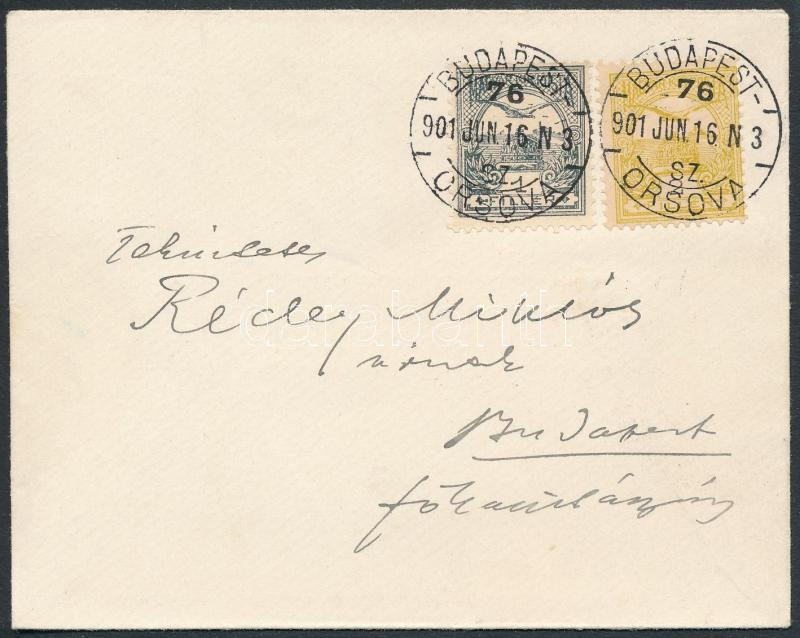 BUDAPEST-
76
901 JUN. 16 N 3
SZ. 1
ORSOVA
BUDAPEST-
76
901 JUN. 16 N 3
SZ.
2
ORSOVA
Tekintetes
Rédey Miklós
úrnak
Budapest
darabanth